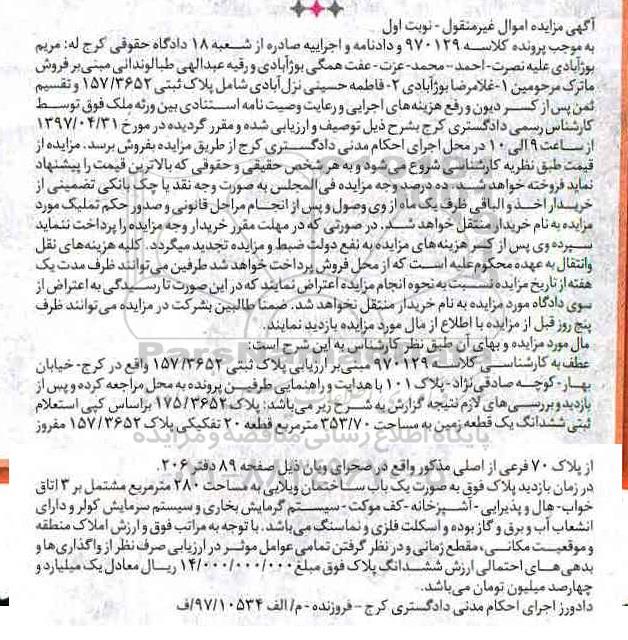 آگهی مزایده اموال غیرمنقول - نوبت اول
به موجب پرونده کلاسه ۹۷۰۱۲۹ و دادنامه و اجراییه صادره از شعبه ۱۸ دادگاه حقوقی کرج له: مریم
بوژآبادی علیه نصرت- احمد – محمد- عزت - عفت همگی بوژآبادی و رقیه عبدالهی طالوندانی مبنی بر فروش
ماترک مرحومین ۱- غلامرضا بوژآبادی ۲- فاطمه حسینی نزل‌آبادی شامل پلاک ثبتی ۱۵۷/۳۶۵۲ و تقسیم
ثمن پس از کسر دیون و رفع هزینه‌های اجرایی و رعایت وصیت نامه استنادی بین ورثه ملک فوق توسط
کارشناس رسمی دادگستری کرج بشرح ذیل توصیف و ارزیابی شده و مقرر گردیده در مورخ ۱۳۹۷/۰۴/۳۱
از ساعت ۹ الی ۱۰ در محل اجرای احکام مدنی دادگستری کرج از طریق مزایده بفروش برسد. مزایده از
قیمت طبق نظریه کارشناسی شروع می‌شود و به هر شخص حقیقی و حقوقی که بالاترین قیمت را پیشنهاد
نماید فروخته خواهد شد. ده درصد وجه مزایده فی‌المجلس به صورت وجه نقد یا چک بانکی تضمینی از
خریدار اخذ و الباقی ظرف یک ماه از وی وصول و پس از انجام مراحل قانونی و صدور حکم تملیک مورد
مزایده به نام خریدار منتقل خواهد شد. در صورتی که در مهلت مقرر خریدار وجه مزایده را پرداخت ننماید
سپرده وی پس از کسر هزینه‌های مزایده به نفع دولت ضبط و مزایده تجدید میگردد. کلیه هزینه‌های نقل
وانتقال به عهده محکوم علیه است که از محل فروش پرداخت خواهد شد طرفین می‌توانند ظرف مدت یک
هفته از تاریخ مزایده نسبت به نحوه انجام مزایده اعتراض نمایند که در این صورت تا رسیدگی به اعتراض از
سوی دادگاه مورد مزایده به نام خریدار منتقل نخواهد شد. ضمنا طالبین بشرکت در مزایده می‌توانند ظرف
پنج روز قبل از مزایده با اطلاع از مال مورد مزایده بازدید نمایند.
مال مورد مزایده و بهای آن طبق نظر کارشناس به این شرح است:
عطف به کارشناسی کلاسه ۹۷۰۱۲۹ مبنی بر ارزیابی پلاک ثبتی ۱۵۷/۳۶۵۲ واقع در کرج- خیابان
بهار - کوچه صادقی‌نژاد - پلاک ۱۰۱ با هدایت و راهنمایی طرفین پرونده به محل مراجعه کرده و پس از
بازدید و بررسی‌های لازم نتیجه گزارش به شرح زیر می‌باشد: پلاک ۱۷۵/۳۶۵۲ براساس کپی استعلام
ثبتی ششدانگ یک قطعه زمین به مساحت ۳۵۳/۷۰ مترمربع قطعه ۲۰ تفکیکی پلاک ۱۵۷/۳۶۵۲ مفروز
از پلاک ۷۰ فرعی از اصلی مذکور واقع در صحرای ویان ذیل صفحه ۸۹ دفتر ۲۰۶.
در زمان بازدید پلاک فوق به صورت یک باب ساختمان ویلایی به مساحت ۲۸۰ مترمربع مشتمل بر ۳ اتاق
خواب- هال و پذیرایی - آشپزخانه - کف موکت - سیستم گرمایش بخاری و سیستم سرمایش کولر و دارای
انشعاب آب و برق و گاز بوده و اسکلت فلزی و نماسنگ می‌باشد. با توجه به مراتب فوق و ارزش املاک منطقه
و موقعیت مکانی، مقطع زمانی و در نظر گرفتن تمامی عوامل موثر در ارزیابی صرف نظر از واگذاری‌ها و
بدهی‌های احتمالی ارزش ششدانگ پلاک فوق مبلغ ۱۴/۰۰۰/۰۰۰/۰۰۰ ریال معادل یک میلیارد و
چهارصد میلیون تومان می‌باشد.
دادورز اجرای احکام مدنی دادگستری کرج – فروزنده - م/ الف ۹۷/۱۰۵۳۴/ف